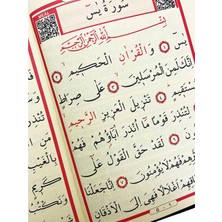 سورة يس
بسم الله الرحمن الرحيم
يس ١ والقرآن الحكيم ٢
إنك لمن المرسلين ٣ على صراط
مستقيم ٤ تنزيل العزيز الرحيم ٥
لتنذر قوما ما أنذر آباؤهم فهم
لقد حق القول على
أكثرهم فهم لا يؤمنون ٧ إنا جعلنا
في أعناقهم أغلالا فهي إلى الأذقان